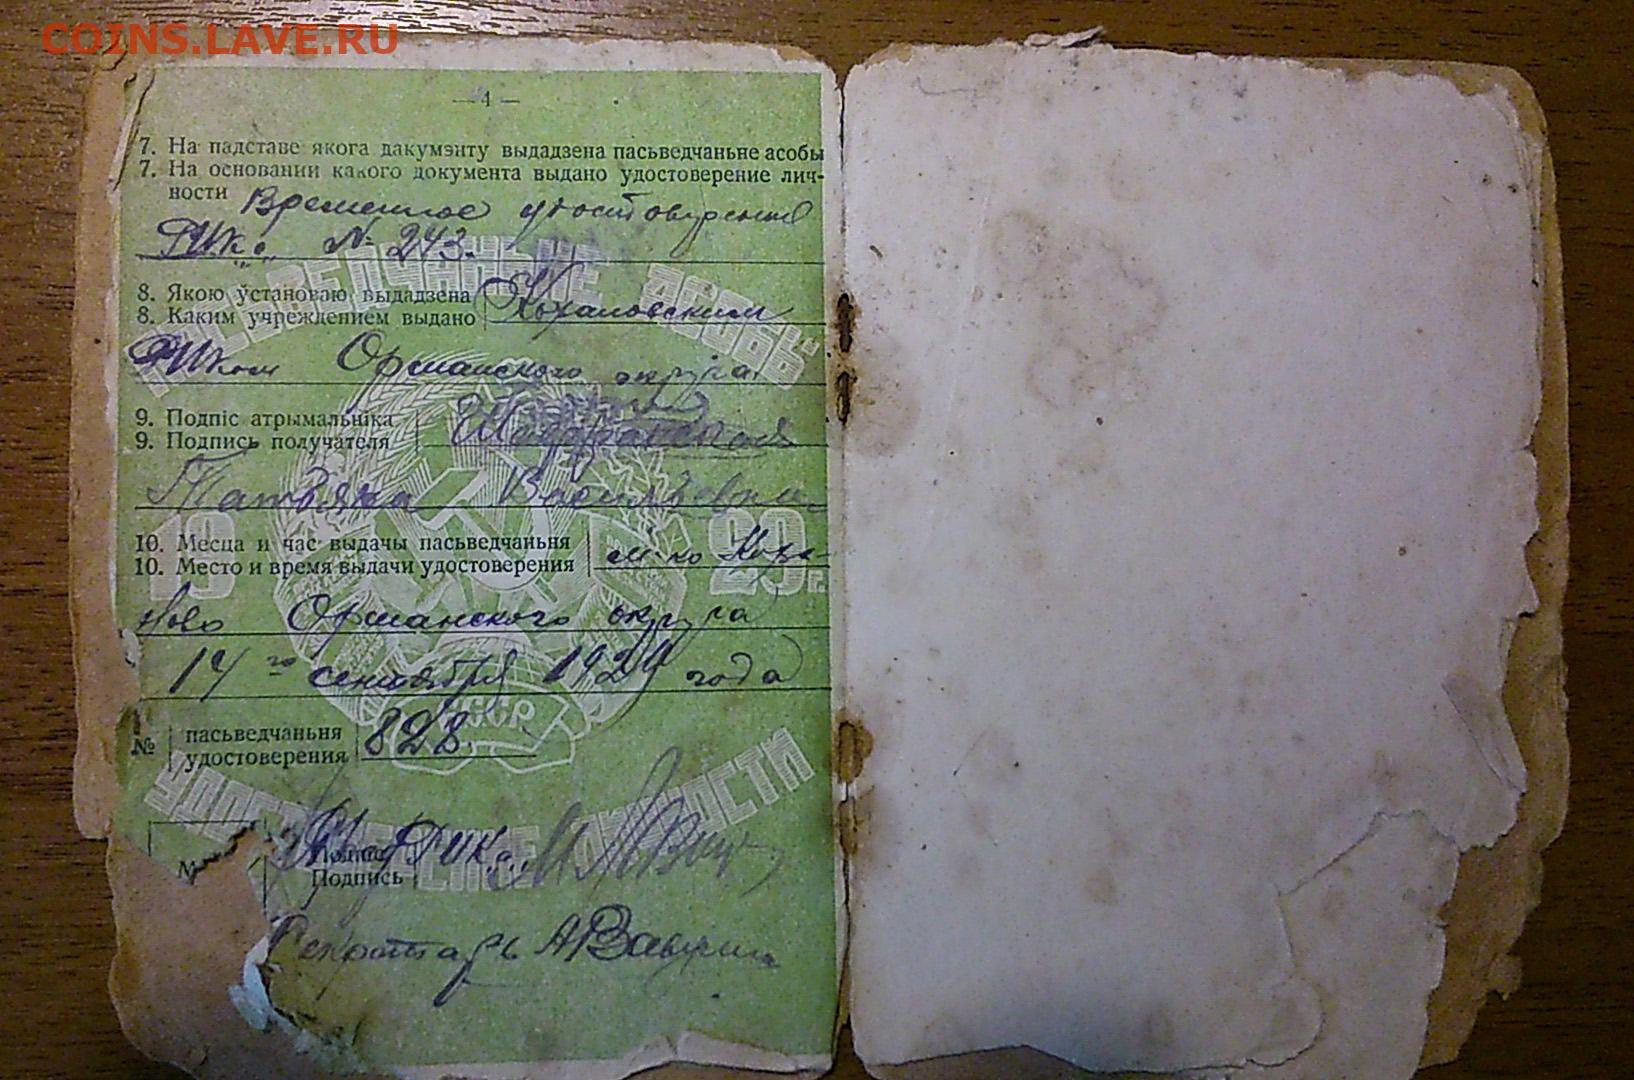 COINS.LAVE.RU
— 4 —
7. На падставе якога дакумэнту выдадзена пасьведчаньне асобы
7. На основании какого документа выдано удостоверение лич-
ности Временное удостоверение
РИК'а № 243.
ПАСЬВЕДЧАНЬНЕ АСОБЫ
8. Якою ўстановаю выдадзена
8. Каким учреждением выдано Кохановским
РИКом Оршанского округа
9. Подпіс атрымальніка
9. Подпись получателя
Татьяна Васильевна
19 29 г.
10. Месца и час выдачы пасьведчаньня
10. Место и время выдачи удостоверения м-ко Коха-
ново Оршанского округа
14 го сентября 1929 года
БССР
№ пасьведчаньня
удостоверения 828
УДОСТОВЕРЕНИЕ ЛИЧНОСТИ
РИКа
Подпіс
Подпись
Секретарь